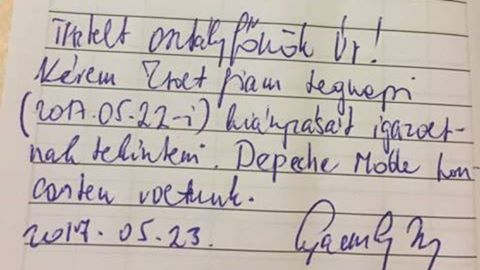 Tisztelt osztályfőnök Úr!
Kérem Zsolt fiam tegnapi
(2017.05.22-i) hiányzását igazolt-
nak tekinteni. Depeche Mode kon-
certen voltunk.
2017.05.23.